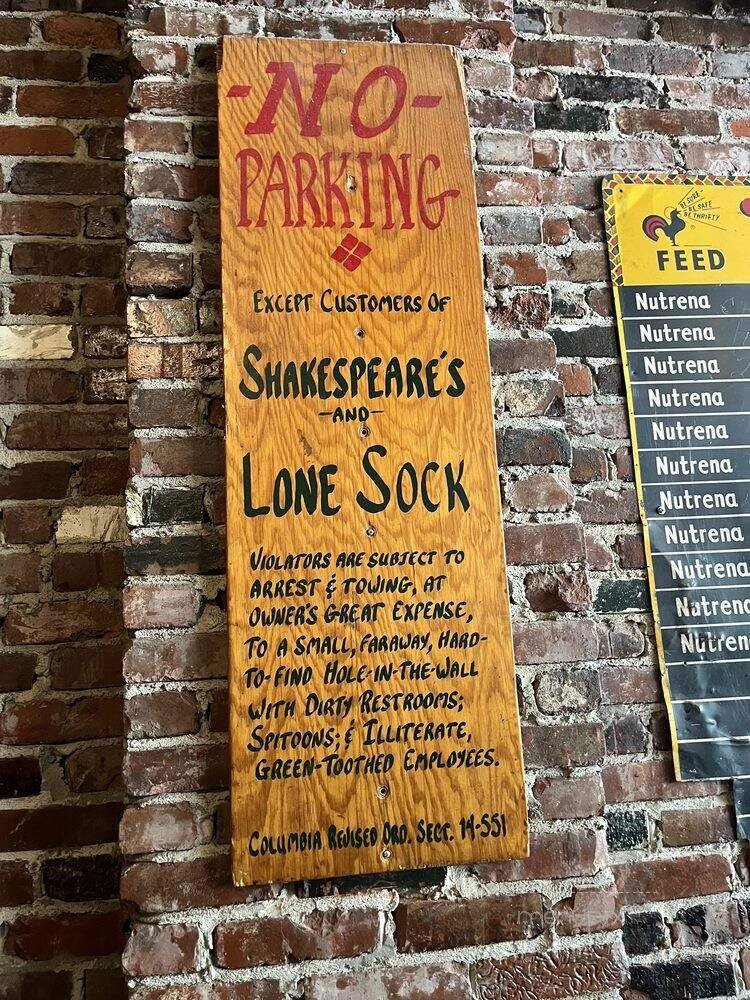 -NO-
PARKING
EXCEPT CUSTOMERS OF
SHAKESPEARE'S
-AND-
LONE SOCK
VIOLATORS ARE SUBJECT TO
ARREST & TOWING, AT
OWNER'S GREAT EXPENSE,
TO A SMALL, FARAWAY, HARD-
TO-FIND HOLE-IN-THE-WALL
WITH DIRTY RESTROOMS;
SPITOONS; & ILLITERATE,
GREEN-TOOTHED EMPLOYEES.
COLUMBIA REVISED ORD. SECT. 14-551
BE SURE-
BE SAFE
BE THRIFTY
FEED
Nutrena
Nutrena
Nutrena
Nutrena
Nutrena
Nutrena
Nutrena
Nutrena
Nutrena
Nutrena
Nutren